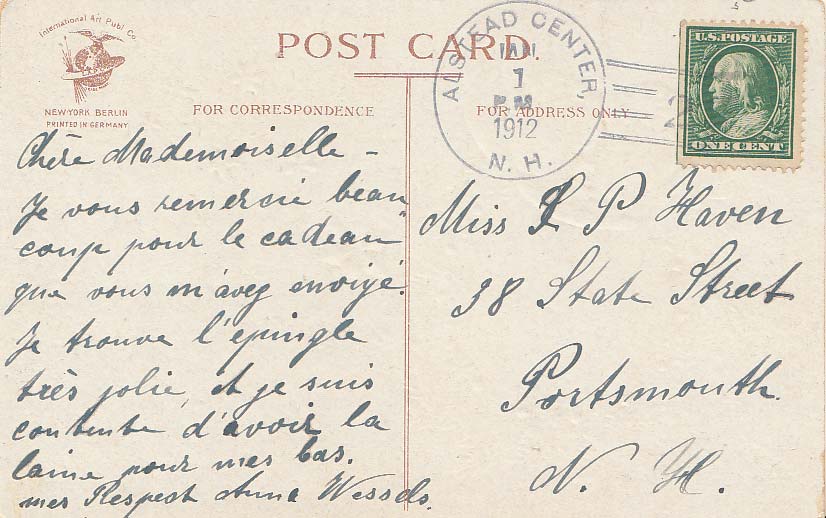 International Art Publ. Co.
NEW-YORK BERLIN
PRINTED IN GERMANY
POST CARD.
FOR CORRESPONDENCE
FOR ADDRESS ONLY
ALSTEAD CENTER,
JAN
1
PM
1912
N. H.
2
U.S. POSTAGE
ONE CENT
Chère Mademoiselle –
Je vous remercie beau
coup pour le cadeau
que vous m'aveg envoyé.
Je trouve l'epingle
très jolie, et je suis
contente d'avoir la
laine pour mes bas.
mes Respect Anna Wessels.
Miss L P Haven
38 State Street
Portsmouth.
N. H.